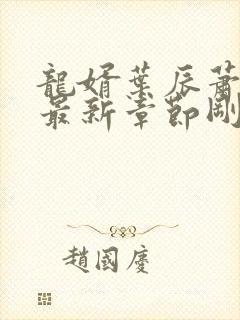 龍婿葉辰蕭
最新章節剛
趙國慶